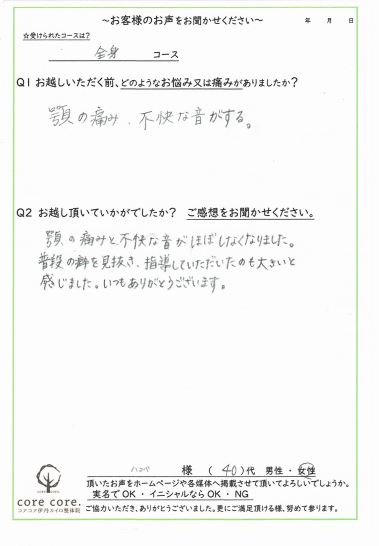 ～お客様のお声をお聞かせください～ 年 月 日
☆受けられたコースは？
全身 コース
Q1 お越しいただく前、どのようなお悩み又は痛みがありましたか？
顎の痛み、不快な音がする。
Q2 お越し頂いていかがでしたか？ ご感想をお聞かせください。
顎の痛みと不快な音がほぼしなくなりました。
普段の癖を見抜き、指導していただいたのも大きいと
感じました。いつもありがとうございます。
様 （ 40 ）代 男性 ・ 女性
頂いたお声をホームページや各媒体へ掲載させて頂いてよろしいでしょうか。
実名でOK ・ イニシャルならOK ・ NG
ご協力いただき、ありがとうございました。更にご満足頂ける様、努めて参ります。
core core.
コアコア伊丹カイロ整体院